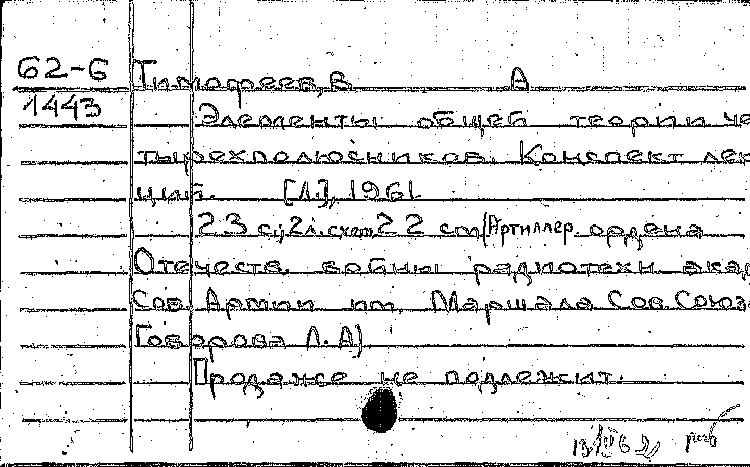 62-6 Тимофеев, В А
1443
Элементы общей теории че
тырехполюсников. Конспект лек
ций. [Л.], 1961
23 с., 2 л. схем 22 см (Артиллер. ордена
Отечеств. войны радиотехн. акад
Сов. Армии им. Маршала Сов. Союза
Говорова Л. А)
Продаже не подлежит.